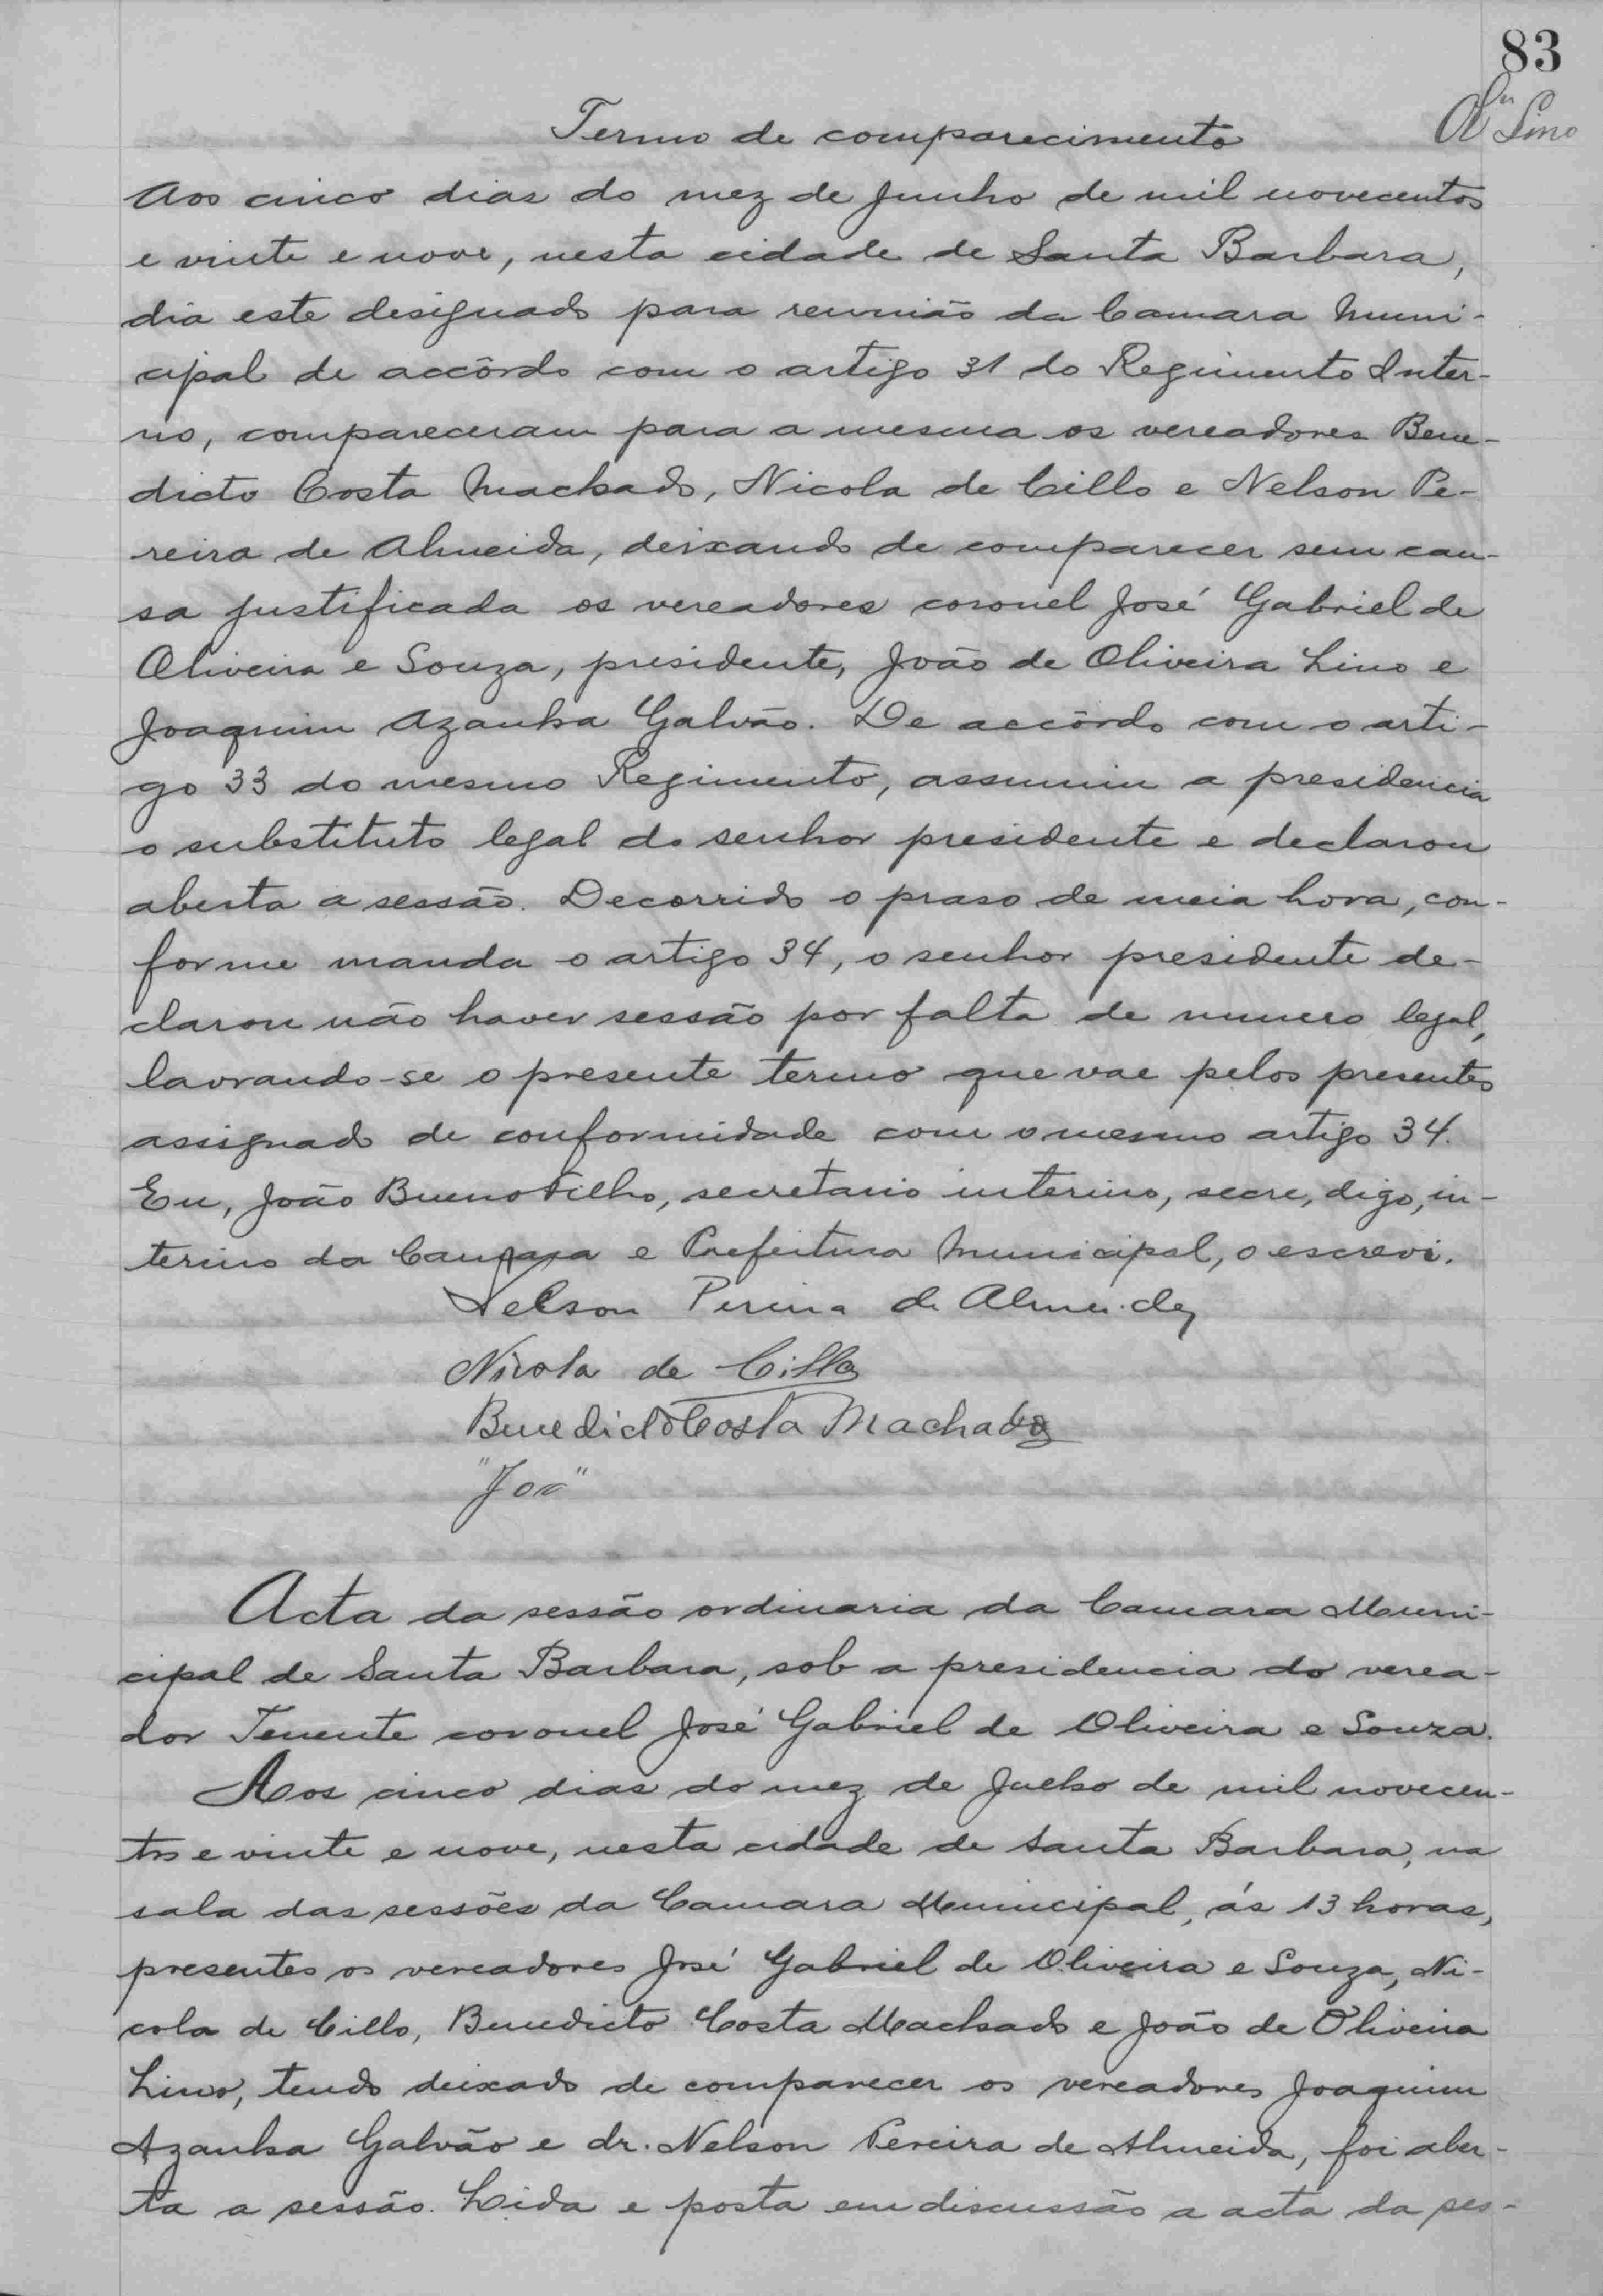 83
Lino
Termo de comparecimento
Aos cinco dias do mez de Junho de mil novecentos
e vinte e nove, nesta cidade de Santa Barbara,
dia este designado para reunião da Camara Muni-
cipal de accôrdo com o artigo 31 do Regimento Inter-
no, compareceram para a mesma os vereadores Bene-
dicto Costa Machado, Nicola de Cillo e Nelson Pe-
reira de Almeida, deixando de comparecer sem cau-
sa justificada os vereadores coronel José Gabriel de
Oliveira e Souza, presidente, João de Oliveira Lino e
Joaquim Azanha Galvão. De accôrdo com o arti-
go 33 do mesmo Regimento, assumiu a presidencia
o substituto legal do senhor presidente e declarou
aberta a sessão. Decorrido o praso de meia hora, con-
forme manda o artigo 34, o senhor presidente de-
clarou não haver sessão por falta de numero legal,
lavrando-se o presente termo que vae pelos presentes
assignado de conformidade com o mesmo artigo 34.
Eu, João Bueno Filho, secretario interino, secre, digo, in-
terino da Camara e Prefeitura Municipal, o escrevi.
Nelson Pereira de Almeida
Nicola de Cillo
Benedicto Costa Machado
Acta da sessão ordinaria da Camara Muni-
cipal de Santa Barbara, sob a presidencia do verea-
dor Tenente coronel José Gabriel de Oliveira e Souza.
Aos cinco dias do mez de Julho de mil novecen-
tos e vinte e nove, nesta cidade de Santa Barbara, na
sala das sessões da Camara Municipal, ás 13 horas,
presentes os vereadores José Gabriel de Oliveira e Souza, Ni-
cola de Cillo, Benedicto Costa Machado e João de Oliveira
Lino, tendo deixado de comparecer os vereadores Joaquim
Azanha Galvão e dr. Nelson Pereira de Almeida, foi aber-
ta a sessão. Lida e posta em discussão a acta da ses-